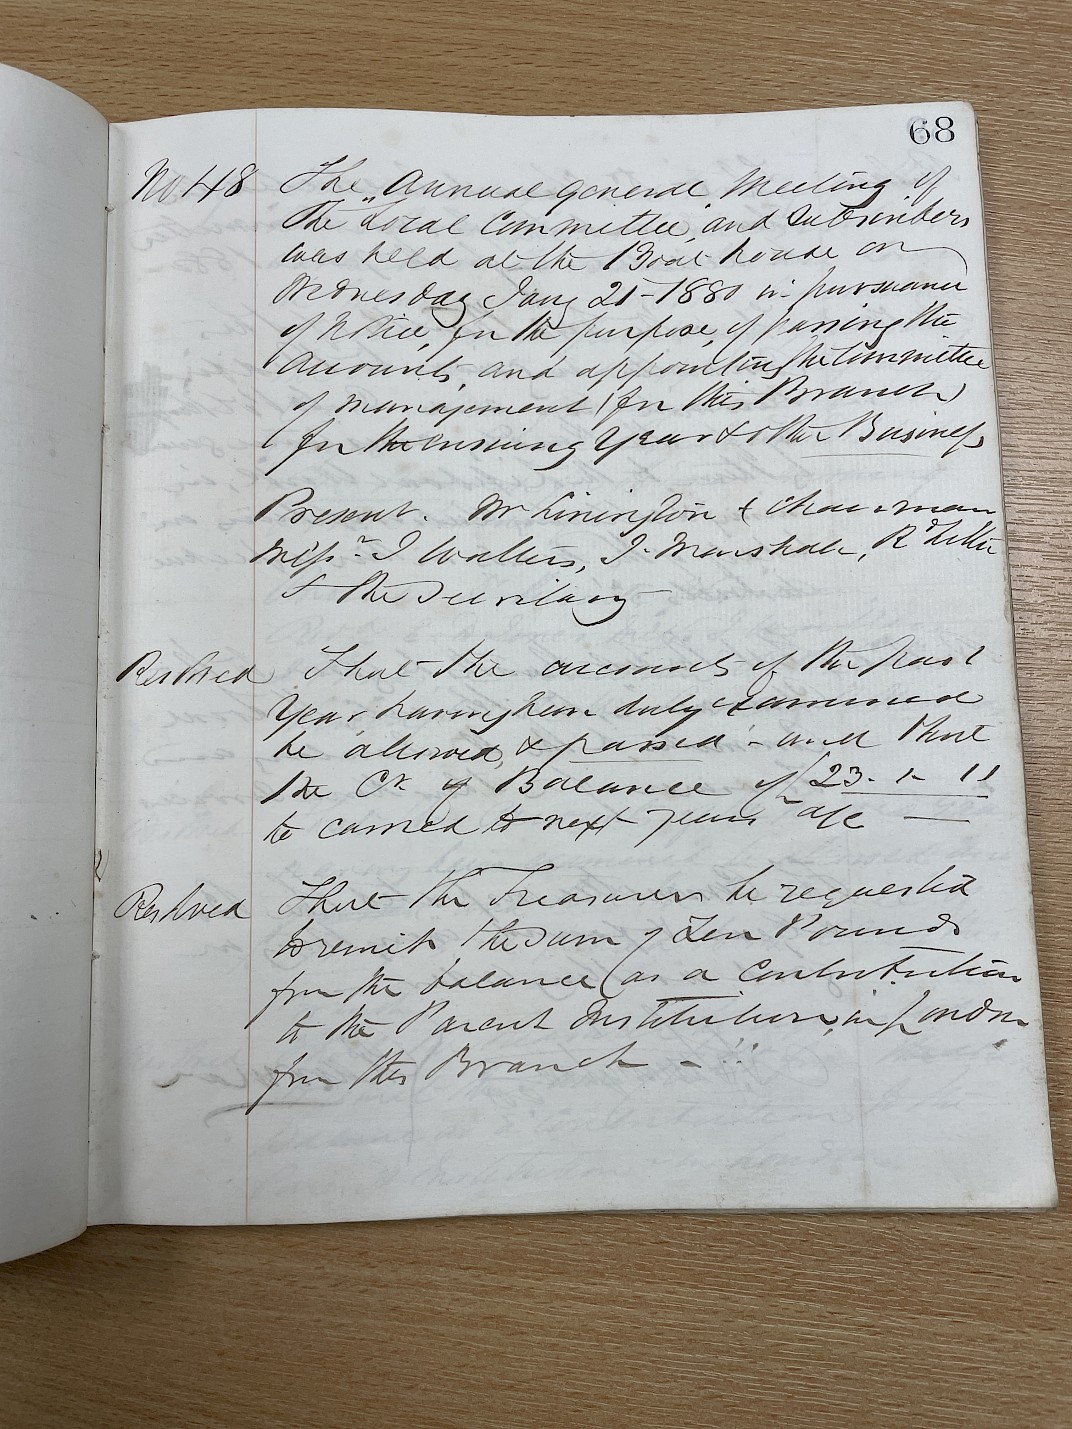 68
No 48 The "Annual general Meeting" of
the Local Committee, and Subscribers
was held at the Boat house on
Wednesday Jany 21 - 1880 in pursuance
of Notice, for the purpose, of passing the
Accounts, and appointing the Committee
of management (for this Branch)
for the ensuing Year & other Business
Present. Mr Linington Chairman
Messrs J Walters, J. Marshall, Rd
& the Secretary
Resolved That the accounts of the past
Year having been duly Examined
be allowed, & passed - and that
the Cr of Balance of 23. 1. 11
to carried to next years a/c
Resolved That the Treasurer be requested
to remit the Sum of Ten Pounds
from the balance (as a Contribution
to the Parent Institution, in London
from this Branch -